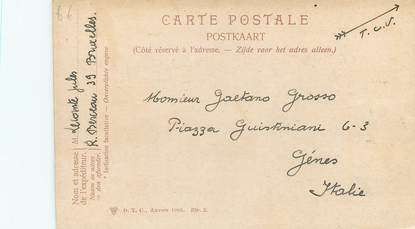 CARTE POSTALE
POSTKAART
(Côté réservé à l'adresse. — Zijde voor het adres alleen.)
T. C. V.
Monsieur Gaetano Grosso
Piazza Guistiniani 6-3
Gênes
Italie
Nom et adresse
de l'expéditeur.
M. Lecomte Jules
R. 39 Bruxelles.
Naam en adres
Indication facultative — Onverplichte opgave
D. T. C., Anvers 1905. Blz. 2.